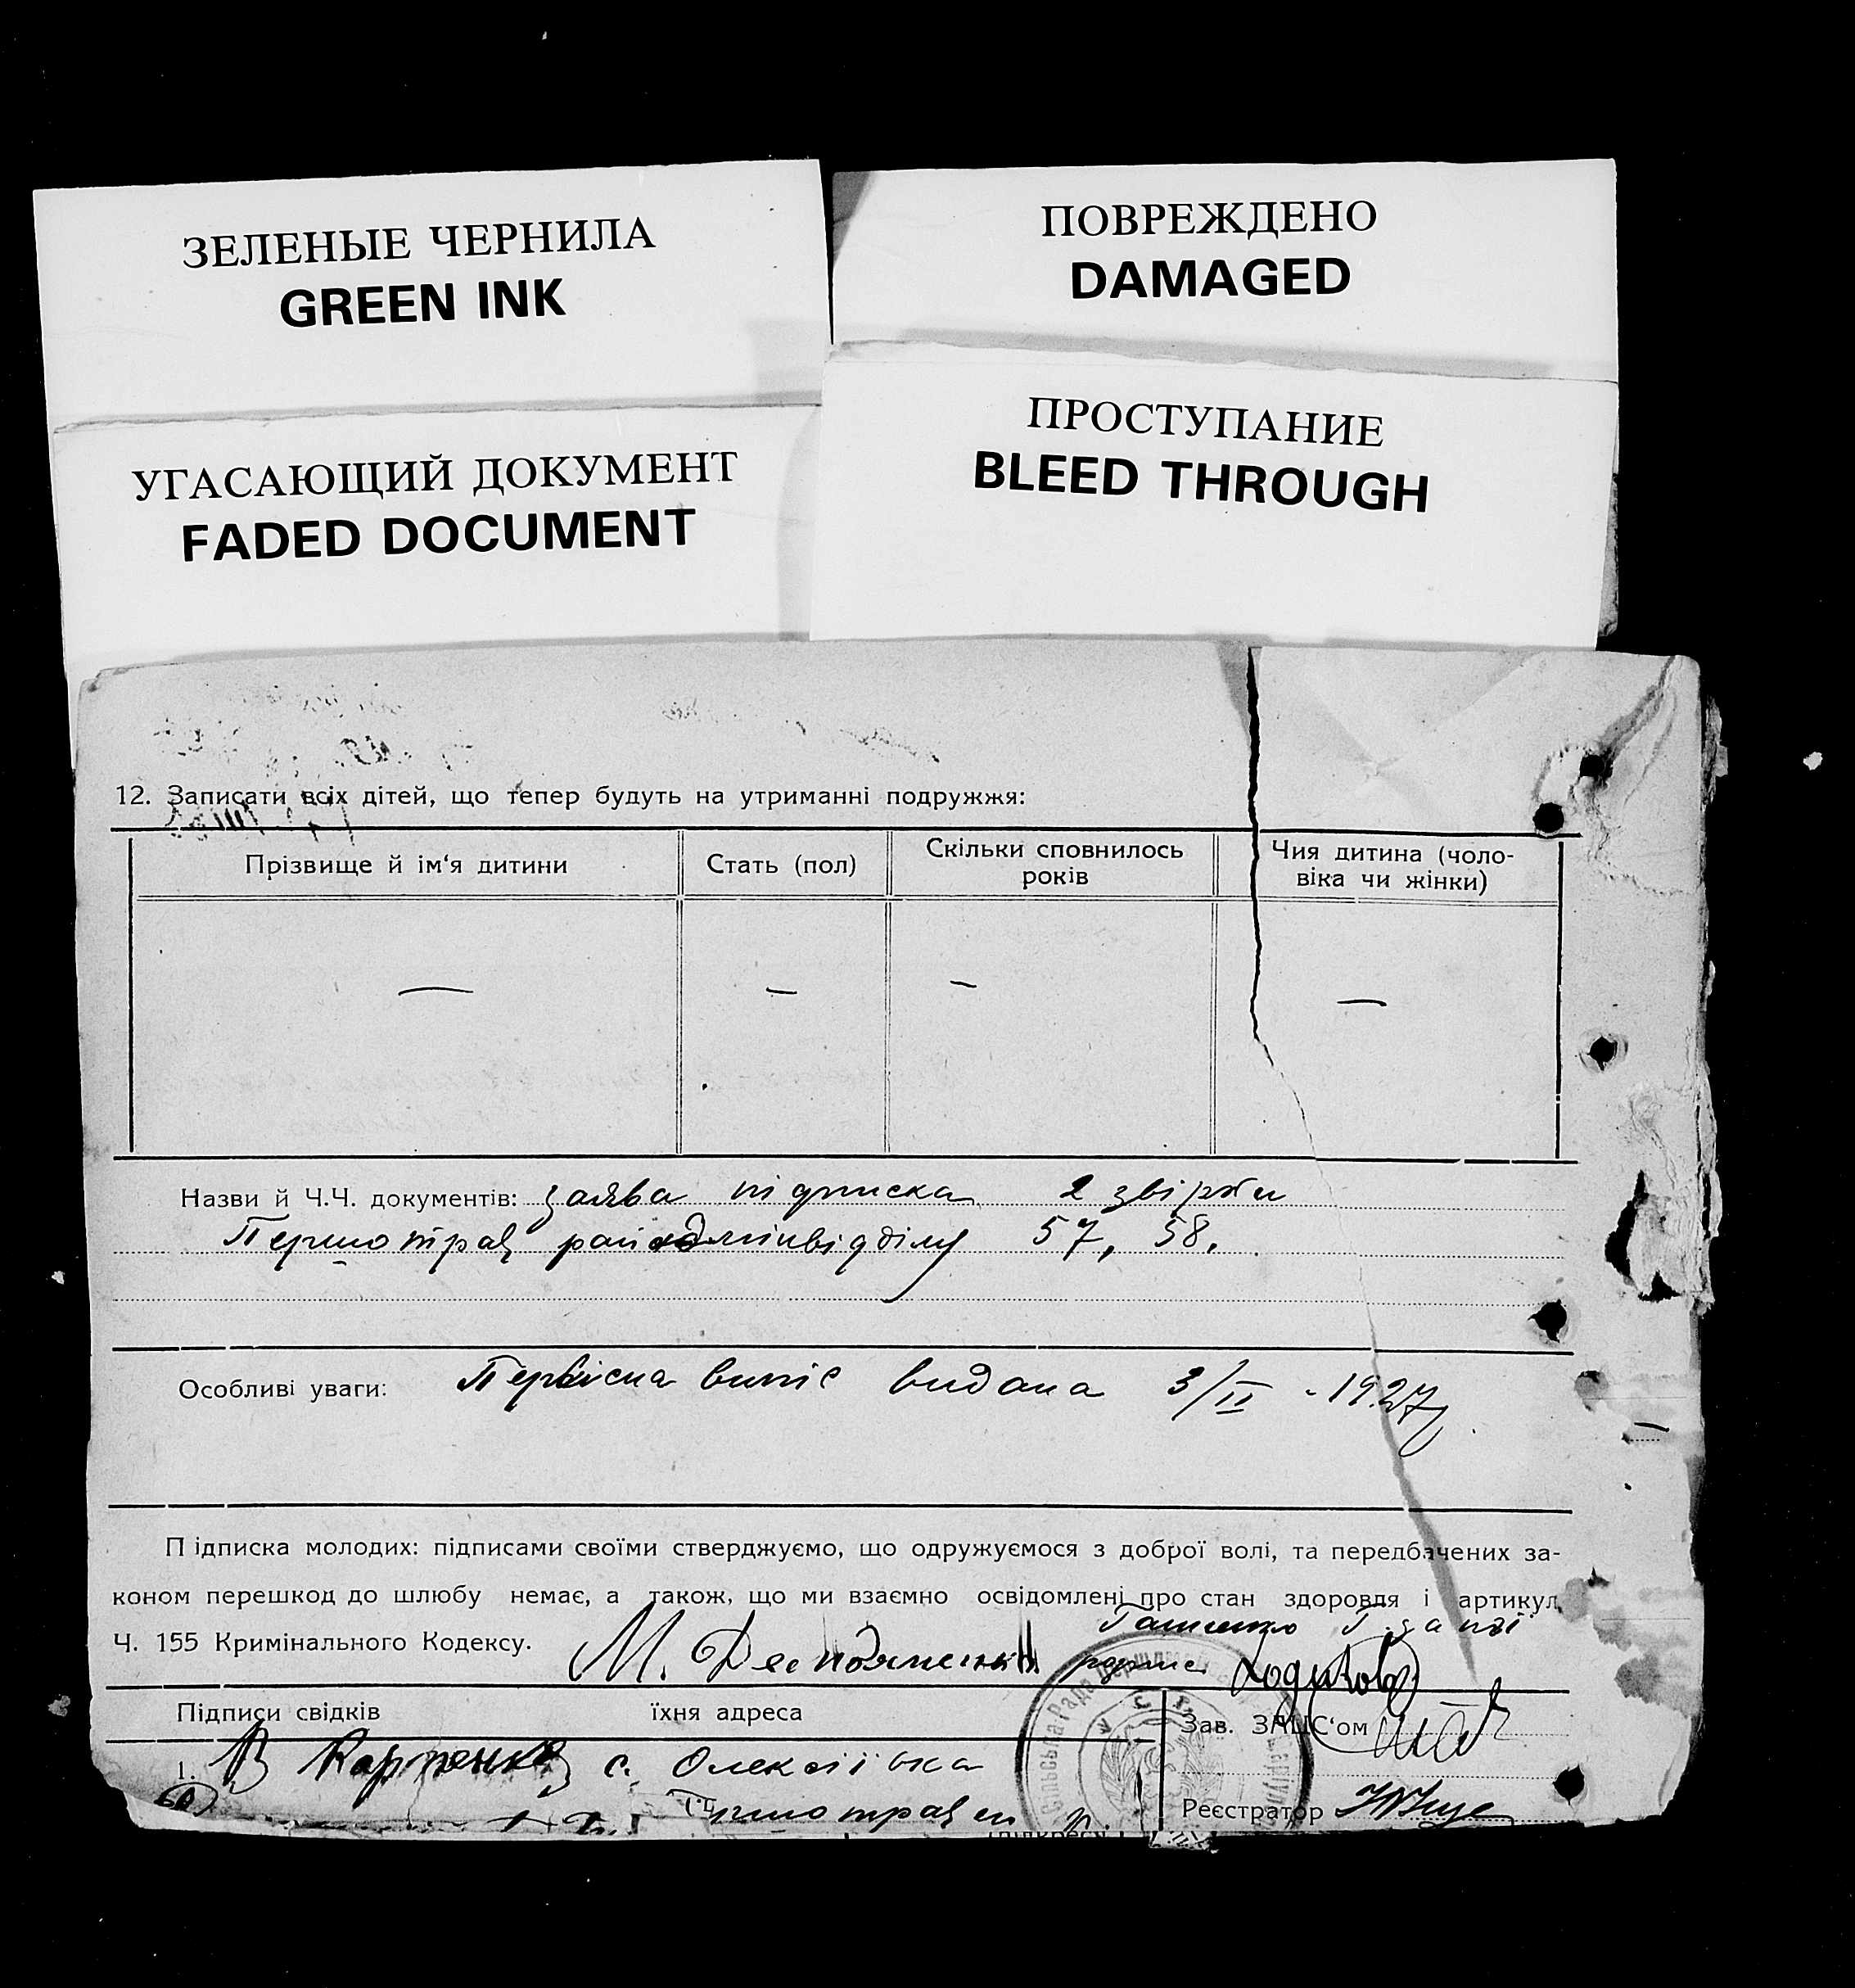 ЗЕЛЕНЫЕ ЧЕРНИЛА
GREEN INK
ПОВРЕЖДЕНО
DAMAGED
УГАСАЮЩИЙ ДОКУМЕНТ
FADED DOCUMENT
ПРОСТУПАНИЕ
BLEED THROUGH
12. Записати всіх дітей, що тепер будуть на утриманні подружжя:
Прізвище й ім‘я дитини
Стать (пол)
Скільки сповнилось
років
Чия дитина (чоло-
віка чи жінки)
— — — —
Назви й Ч.Ч. документів: заява підписка 2 звірки
Першотрав райадмінвідділу 57, 58.
Особливі уваги: Первісна випіс видана 3/II - 1927
Підписка молодих: підписами своїми стверджуємо, що одружуємося з доброї волі, та передбачених за-
коном перешкод до шлюбу немає, а також, що ми взаємно освідомлені про стан здоровля і артикул
Ч. 155 Кримінального Кодексу. М.
Підписи свідків їхня адреса
Зав. ЗАЦС‘ом
1. В Карпенко с. Олексіївка
Реєстратор
Сільська Рада